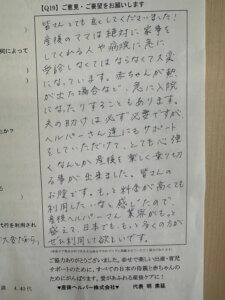 【Q19】ご意見・ご要望をお願いします
皆さんとても良くしてくださいました!
産後のママは絶対に家事を
してくれる人や病院に急に
受診しなくてはならなくて大変
になっています。赤ちゃんが熱
が出た場合など、急に入院
になったりすることもあります。
夫の助けは必ず必要ですが
ヘルパーさん達にもサポート
をしていただけて、とても心強
くなんとか産後を楽しく乗り切
る事が出来ました。皆さんの
お陰です。もっと料金が高くても
利用したいなく感じたので、
産後ヘルパーさん業界がもっと
盛えて、日本でももっと多くの方が
ぜひ利用し欲しいです。
ご協力ありがとうございました。幸せで楽しい出産・育児
サポートのために、すべての日本の母親と赤ちゃんの
ためにがんばります。愛があふれるご家庭を!
♥産後ヘルパー株式会社♥ 代表 明 素延
何によって
たか?
代行を利用され
大答だから
歳 4.40代